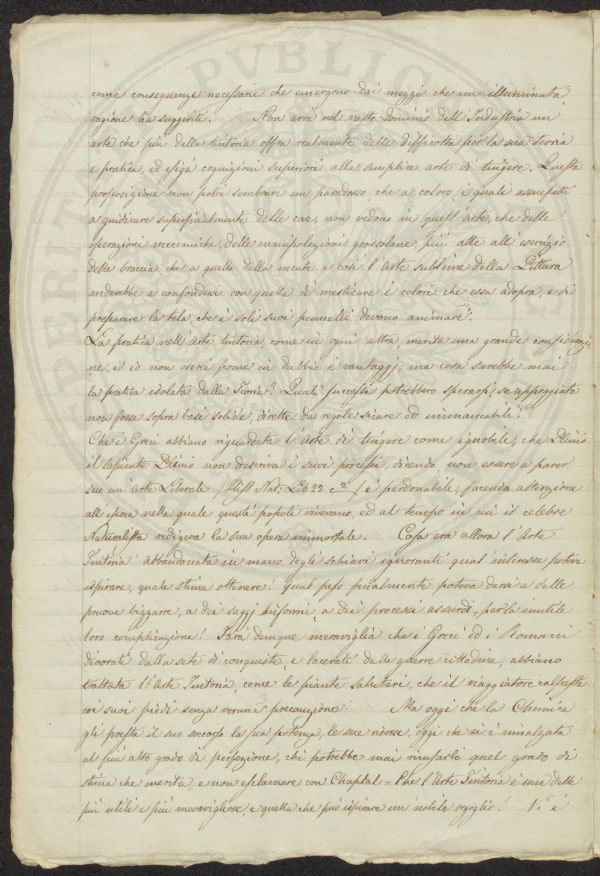 come conseguenze necessarie che emergono dai mezzi che un' illuminata
ragione ha suggeriti. Non avvi nel vasto dominio dell'Industria un'
arte che più della tintoria offra realmente delle difficoltà per la sua Teoria
e pratica, ed esiga cognizioni superiori alla semplice arte di tingere. Questa
proposizione non potrà sembrare un paradosso che a coloro, i quali assuefatti
a giudicare superficialmente delle cose, non vedono in quest'Arte, che delle
operazioni meccaniche, delle manipolazioni grossolane, più atte all'esercizio
delle braccia che a quello della mente, e così l'Arte sublime della Pittura
anderebbe a confondersi con quella di mesticare i colori che essa adopra, e di
preparare la tela, che i soli suoi pennelli devono animare.
La pratica nell'Arte tintoria, come in ogni altra, merita una grande considerazio
ne, ed io non oserei porne in dubbio i vantaggj, ma cosa sarebbe mai
la pratica isolata dalla Teoria? Quali successi potrebbero sperarsi, se appoggiata
non fosse sopra basi solide, dirette da regole sicure ed immancabili?
Che i Greci abbiano riguardata l'Arte di tingere come ignobile, che Plinio
il sapiente Plinio non descriva i suoi processi, dicendo, non essere a parer
suo un'Arte Liberale (Hist. Nat. Lib. 22 c.) è perdonabile, facendo attenzione
all'epoca nella quale questi popoli vivevano, ed al tempo in cui il celebre
Naturalista redigeva la sua opera immortale. Cosa era allora l'Arte
Tintoria? Abbandonata in mano degli schiavi ignoranti qual interesse poteva
ispirare, quale stima ottenere? Qual peso finalmente poteva darsi a delle
pruove bizzarre, a dei saggi informi, a dei processi assurdi, per la inutile
loro complicazione? Sarà dunque meraviglia che i Greci ed i Romani
divorati dalla sete di conquiste, e lacerati dalle guerre cittadine, abbiano
trattata l'Arte Tintoria, come le piante salutari, che il viaggiatore calpesta
coi suoi piedi senza veruna precauzione. Ma oggi che la Chimica
gli presta il suo soccorso la sua potenza, le sue risorse, oggi che si è innalzata
al più alto grado di perfezione, chi potrebbe mai ricusarli quel grado di
stima che merita, e non esclamare con Chaptal = Che l'Arte Tintoria è una delle
più utili e più meravigliose, e quella che può ispirare un nobile orgoglio! Vi è